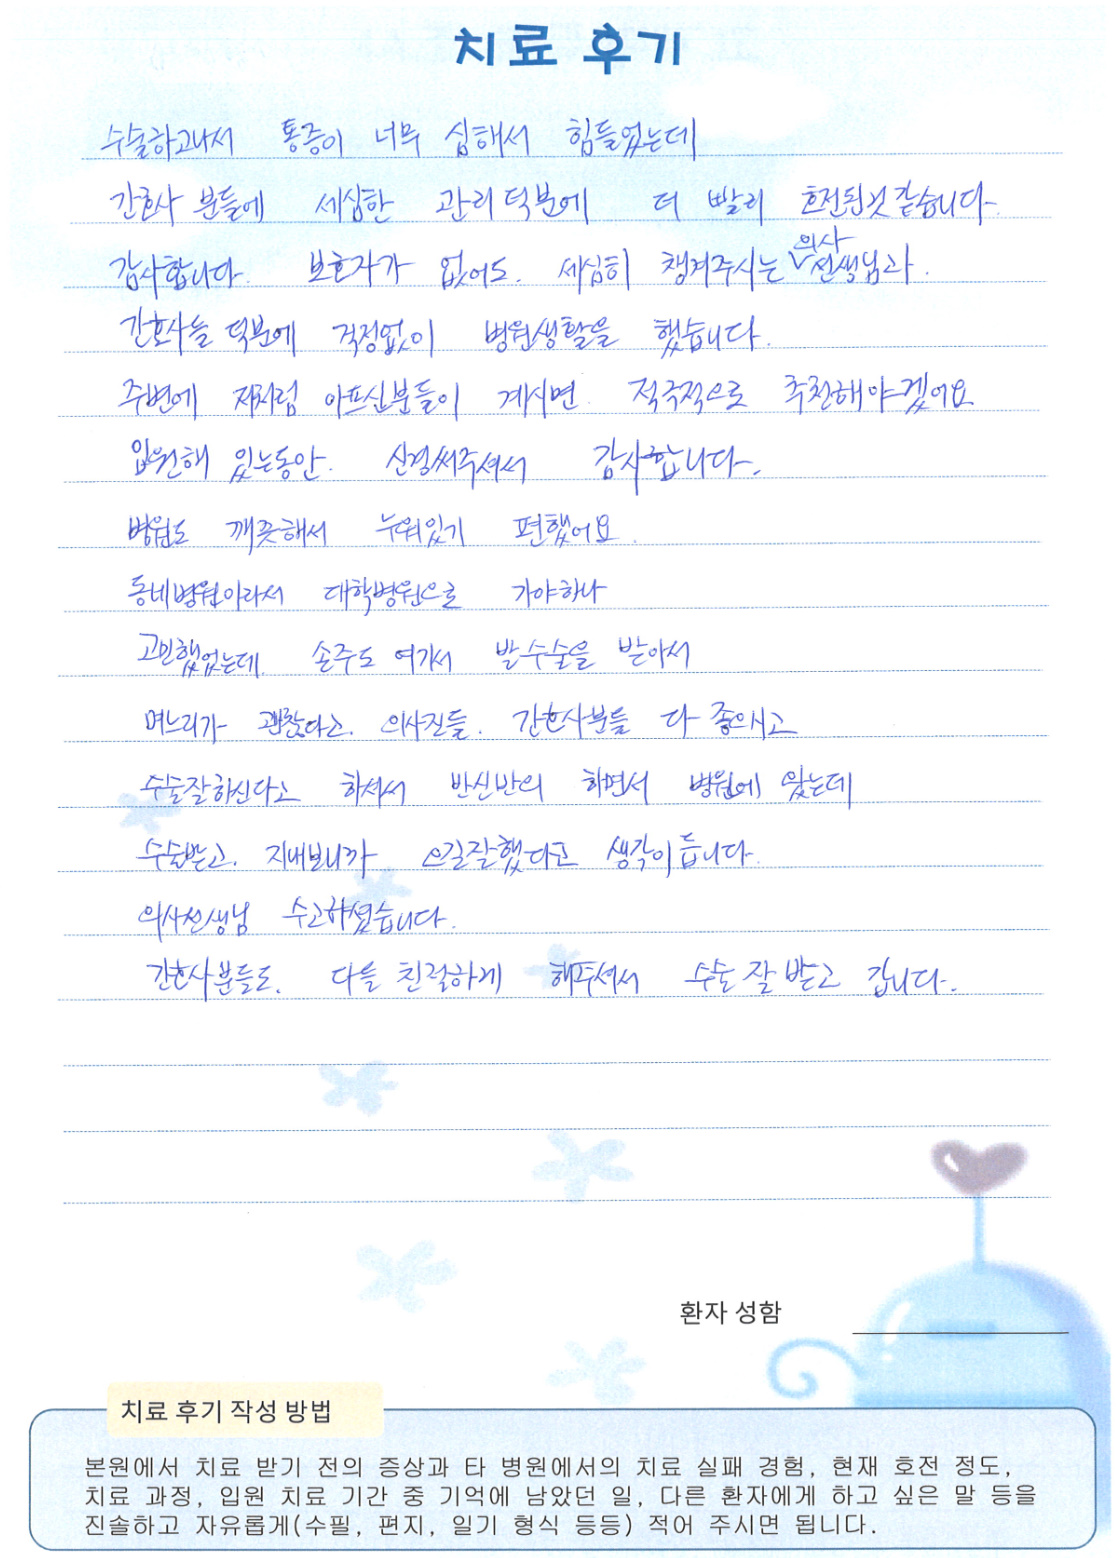 치료 후기
수술하고나서 통증이 너무 심해서 힘들었는데
간호사 분들에 세심한 관리 덕분에 더 빨리 호전된것 같습니다.
감사합니다. 보호자가 없어도. 세심히 챙겨주시는 의사 선생님과.
간호사들 덕분에 걱정없이 병원생활을 했습니다.
주변에 저처럼 아프신분들이 계시면 적극적으로 추천해야겠어요
입원해 있는동안. 신경써주셔서 감사합니다.
병원도 깨끗해서 누워있기 편했어요.
동네병원이라서 대학병원으로 가야하나
고민했었는데. 손주도 여기서 발수술을 받아서
며느리가 괜찮다고. 의사진들. 간호사분들 다 좋으시고
수술잘하신다고 하셔서 반신반의 하면서 병원에 왔는데
수술받고. 지내보니까 오길잘했다고 생각이듭니다.
의사선생님 수고하셨습니다.
간호사분들도. 다들 친절하게 해주셔서 수술 잘 받고 갑니다.
환자 성함
치료 후기 작성 방법
본원에서 치료 받기 전의 증상과 타 병원에서의 치료 실패 경험, 현재 호전 정도,
치료 과정, 입원 치료 기간 중 기억에 남았던 일, 다른 환자에게 하고 싶은 말 등을
진솔하고 자유롭게(수필, 편지, 일기 형식 등등) 적어 주시면 됩니다.